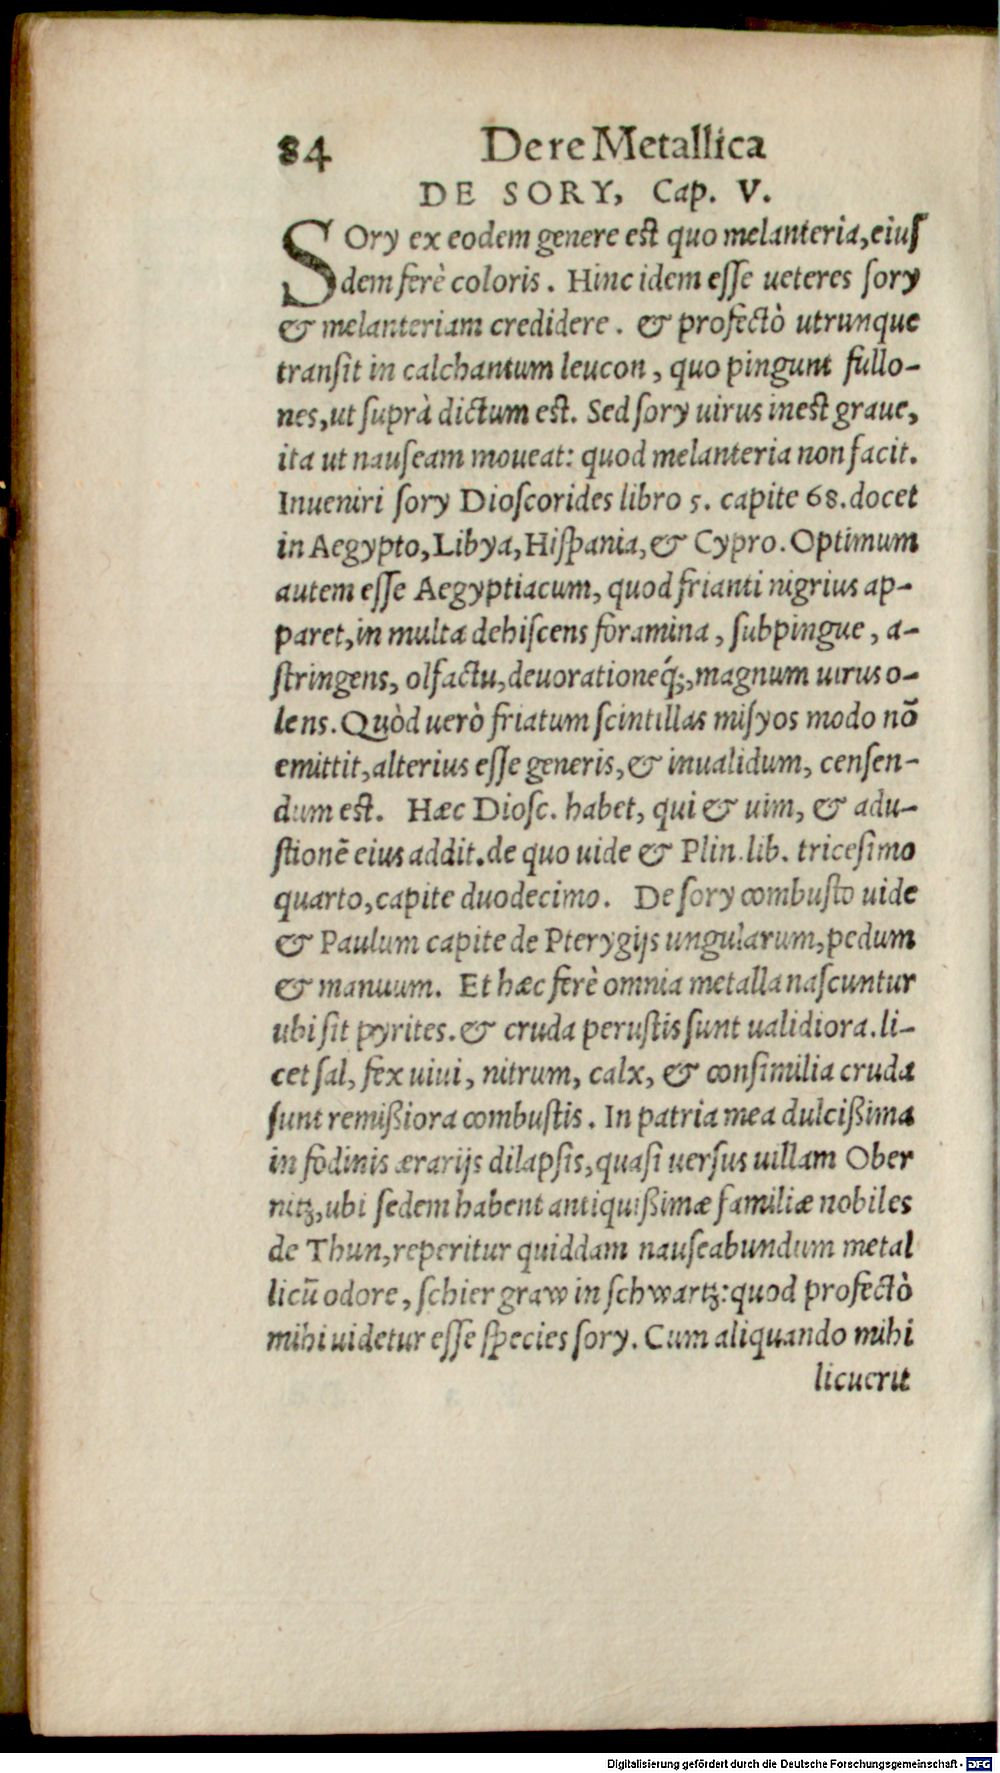 84 De re Metallica
DE SORY, Cap. V.
SOry ex eodem genere est quo melanteria, eiuſ
dem ferè coloris. Hinc idem eſſe ueteres ſory
& melanteriam credidere. & profectò utrunque
tranſit in calchantum leucon, quo pingunt fullo-
nes, ut ſuprà dictum est. Sed ſory uirus inest graue,
ita ut nauſeam moueat: quod melanteria non facit.
Inueniri ſory Dioſcorides libro 5. capite 68. docet
in Aegypto, Libya, Hiſpania, & Cypro. Optimum
autem eſſe Aegyptiacum, quod frianti nigrius ap-
paret, in multa dehiſcens foramina, ſubpingue, a-
ſtringens, olfactu, deuorationeq́;, magnum uirus o-
lens. Quòd uerò friatum ſcintillas miſyos modo nō
emittit, alterius eſſe generis, & inualidum, cenſen-
dum est. Hæc Dioſc. habet, qui & uim, & adu-
ſtionē eius addit. de quo uide & Plin. lib. triceſimo
quarto, capite duodecimo. De ſory combuſto uide
& Paulum capite de Pterygijs ungularum, pedum
& manuum. Et hæc ferè omnia metalla naſcuntur
ubi ſit pyrites. & cruda peruſtis ſunt ualidiora. li-
cet ſal, fex uiui, nitrum, calx, & conſimilia cruda
ſunt remißiora combuſtis. In patria mea dulcißima
in fodinis ærarijs dilapſis, quaſi uerſus uillam Ober
nitz, ubi ſedem habent antiquißimæ familiæ nobiles
de Thun, reperitur quiddam nauſeabundum metal
licū odore, ſchier graw in ſchwartz: quod profectò
mihi uidetur eſſe ſpecies ſory. Cum aliquando mihi
licuerit
Digitalisierung gefördert durch die Deutsche Forschungsgemeinschaft - DFG